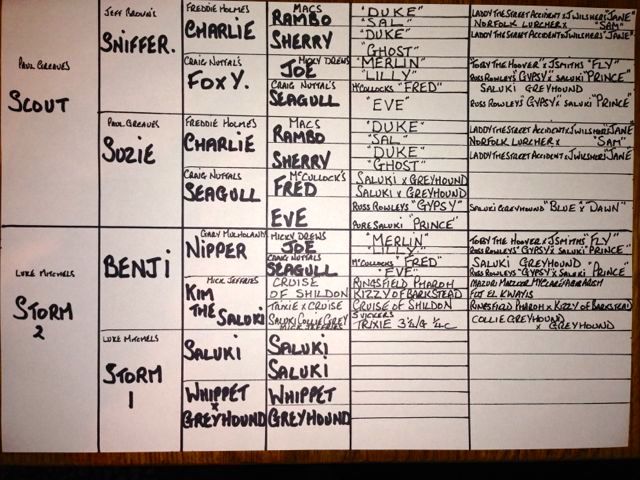 PAUL GREAVES
SCOUT
JEFF BROWN'S
SNIFFER.
FREDDIE HOLMES
CHARLIE
MACS
RAMBO
SHERRY
"DUKE"
"SAL"
"DUKE"
"GHOST"
LADDY THE STREET ACCIDENT X J WILSHERS "JANE"
NORFOLK LURCHER X "SAM"
LADDY THE STREET ACCIDENT X J WILSHERS "JANE"
CRAIG NUTTAL'S
FOXY.
MICKY DREWS
JOE
CRAIG NUTTAL'S
SEAGULL
"MERLIN"
"LILLY"
McCULLOCKS "FRED"
"EVE"
"TOBY THE HOOVER" X J SMITHS "FLY"
RUSS ROWLEYS "GYPSY" X SALUKI "PRINCE"
SALUKI GREYHOUND
RUSS ROWLEYS "GYPSY" X SALUKI "PRINCE"
PAUL GREAVES
SUZIE
FREDDIE HOLMES
CHARLIE
MACS
RAMBO
SHERRY
"DUKE"
"SAL"
"DUKE"
"GHOST"
LADDY THE STREET ACCIDENT X J WILSHERS "JANE"
NORFOLK LURCHER X "SAM"
LADDY THE STREET ACCIDENT X J WILSHERS "JANE"
CRAIG NUTTALS
SEAGULL
McCULLOCK'S
FRED
EVE
SALUKI X GREYHOUND
SALUKI X GREYHOUND
RUSS ROWLEYS "GYPSY"
PURE SALUKI "PRINCE"
SALUKI GREYHOUND "BLUE X DAWN"
LUKE MITCHELS
STORM
2
BENJI
GARY MULHOLAND
NIPPER
MICKY DREWS
JOE
CRAIG NUTTALS
SEAGULL
"MERLIN"
"LILLY"
McCULLOCKS "FRED"
"EVE"
TOBY THE HOOVER X J SMITHS "FLY"
RUSS ROWLEYS "GYPSY" X SALUKI "PRINCE"
SALUKI GREYHOUND "A"
RUSS ROWLEYS "GYPSY" X SALUKI "PRINCE"
MICK JEFFRIES
KIM
THE
SALUKI
CRUISE
OF SHILDON
TRIXIE X CRUISE
SALUKI COLLIE GREY
MICK JEFFRIES
RINGSFIELD PHAROH
KIZZY OF BARKSTEAD
CRUISE OF SHILDON
TRIXIE 3/4 G 1/4 C
EL KWAYIS
RINGSFIELD PHAROH X KIZZY OF BARKSTEAD
COLLIE GREYHOUND
X GREYHOUND
LUKE MITCHELS
STORM
1
SALUKI
SALUKI
SALUKI
WHIPPET
X
GREYHOUND
WHIPPET
GREYHOUND